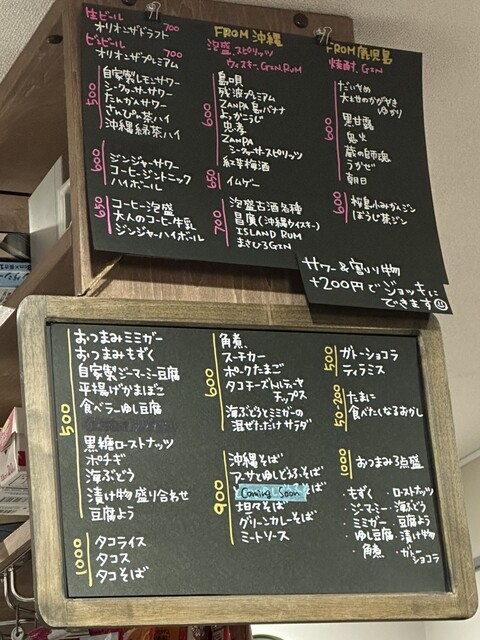 生ビール
オリオンザドラフト 700
ビンビール
オリオンザプレミアム 700
500
自家製レモンサワー
シークヮーサーサワー
たんかんサワー
さんぴん茶ハイ
沖縄緑茶ハイ
600
ジンジャーサワー
コーヒージントニック
ハイボール
650
コーヒー泡盛
大人のコーヒー牛乳
ジンジャーハイボール
FROM沖縄
泡盛、スピリッツ
ウィスキー、GIN、RUM
600
島唄
残波プレミアム
ZANPA島バナナ
よっかこうじ
忠孝
ZANPA
シークヮーサースピリッツ
紅芋梅酒
650
イムゲー
700
泡盛古酒各種
昌廣(沖縄ウイスキー)
ISLAND RUM
まさひろGIN
FROM鹿児島
焼酎、GIN
600
だいやめ
大和桜のかがやき
ゆかり
黒甘露
鬼火
蔵の師魂
うかぜ
朝日
600
桜島小みかんジン
ほうじ茶ジン
サワー&割り物
+200円でジョッキに
できます☺
500
おつまみミミガー
おつまみもずく
自家製ジーマーミー豆腐
平揚げかまぼこ
食べラーゆし豆腐
黒糖ローストナッツ
ポチギ
海ぶどう
漬け物盛り合わせ
豆腐よう
1000
タコライス
タコス
タコそば
600
角煮
スーチカー
ポークたまご
タコチーズトルティーヤ
チップス
海ぶどうとミミガーの
混ぜただけサラダ
900
沖縄そば
アーサとゆしどうふそば
Coming Soon そば
坦々そば
グリーンカレーそば
ミートソース
500
ガトーショコラ
ティラミス
50-200
たまに
食べたくなるおかし
1000
おつまみ3点盛
・もずく ・ローストナッツ
・ジーマミー ・海ぶどう
・ミミガー ・豆腐よう
・ゆし豆腐 ・漬け物
・角煮 ・ガトーショコラ